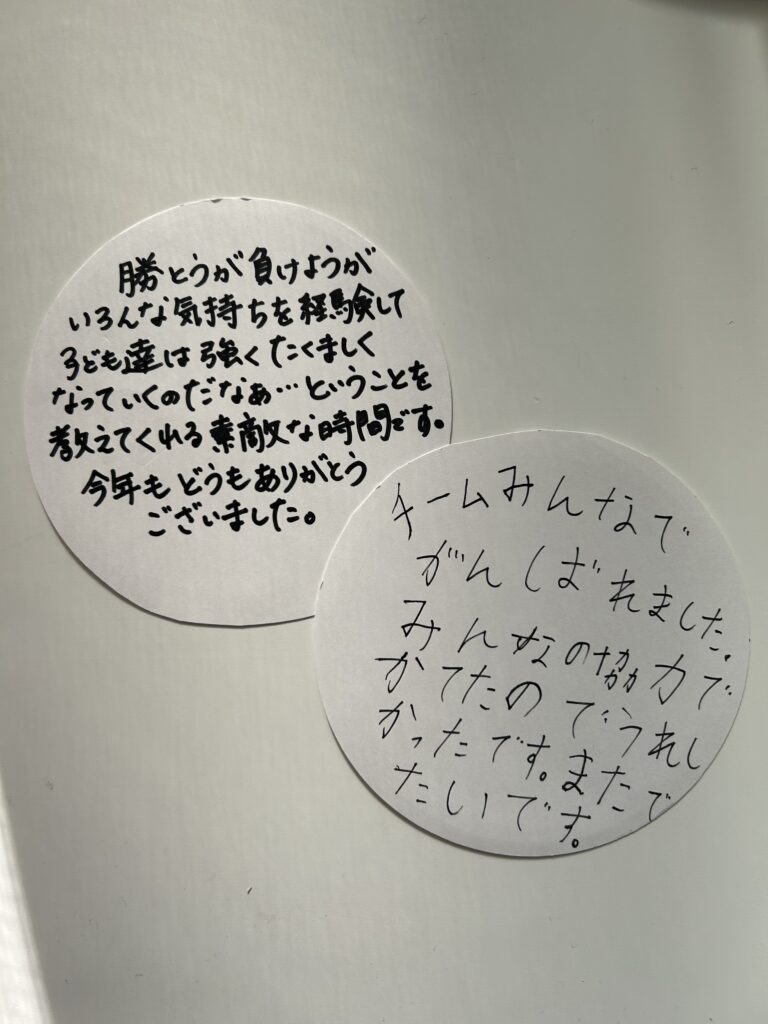 勝とうが負けようが
いろんな気持ちを経験して
子ども達は強くたくましく
なっていくのだなぁ…ということを
教えてくれる素敵な時間です。
今年もどうもありがとう
ございました。
チームみんなで
がんばれました。
みんなの協力で
かてたのでうれし
かったです。またで
たいです。